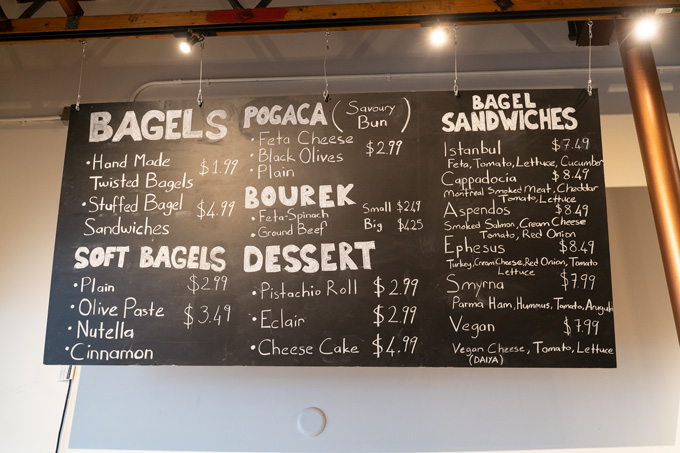 BAGELS
• Hand Made $1.99
Twisted Bagels
• Stuffed Bagel $4.99
Sandwiches
SOFT BAGELS
• Plain $2.99
• Olive Paste $3.49
• Nutella
• Cinnamon
POGACA (Savoury
Bun)
• Feta Cheese
• Black Olives $2.99
• Plain
BOUREK
• Feta-Spinach Small $2.49
• Ground Beef Big $4.25
DESSERT
• Pistachio Roll $2.99
• Eclair $2.99
• Cheese Cake $4.99
BAGEL
SANDWICHES
Istanbul $7.49
Feta, Tomato, Lettuce, Cucumber
Cappadocia $8.49
Montreal Smoked Meat, Cheddar
Tomato, Lettuce
Aspendos $8.49
Smoked Salmon, Cream Cheese
Tomato, Red Onion
Ephesus $8.49
Turkey, Cream Cheese, Red Onion, Tomato
Lettuce
Smyrna $7.99
Parma Ham, Hummus, Tomato, Arugula
Vegan $7.99
Vegan Cheese, Tomato, Lettuce
(DAIYA)